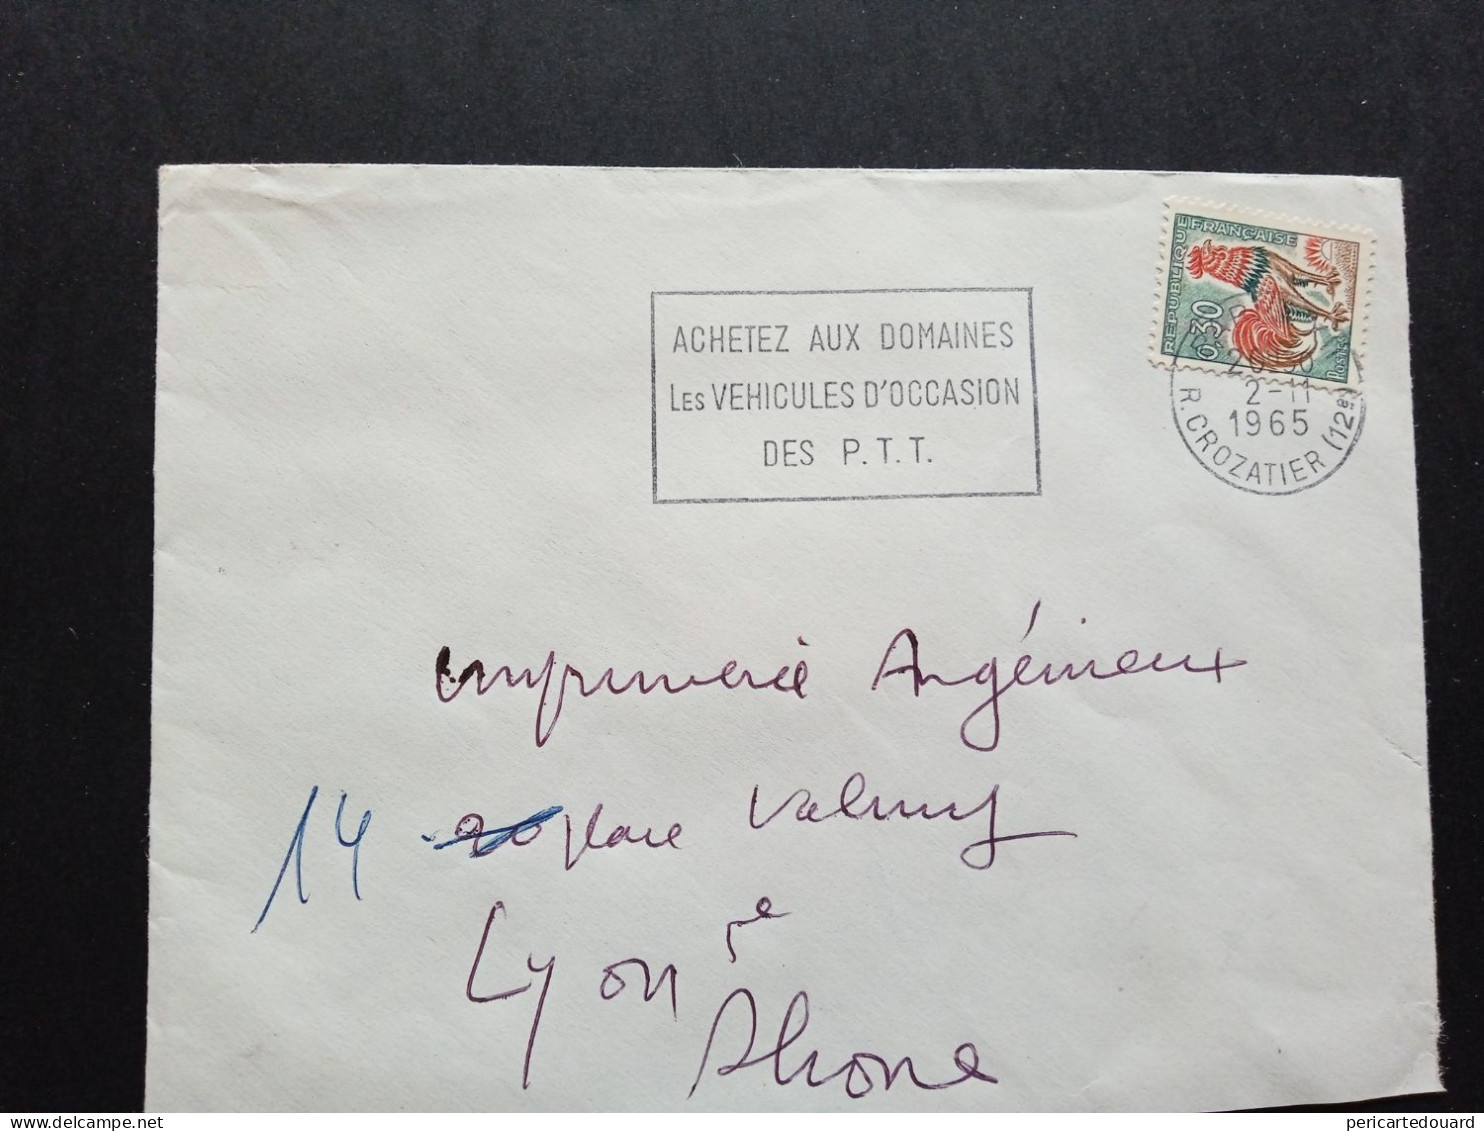 ACHETEZ AUX DOMAINES
LES VEHICULES D'OCCASION
DES P.T.T.
REPUBLIQUE FRANÇAISE
0,30
POSTES
2-11
1965
R. CROZATIER (12e)
Imprimerie Angénieux
14 20 place Valmy
Lyon 5e
Rhone
www.delcampe.net
pericartedouard